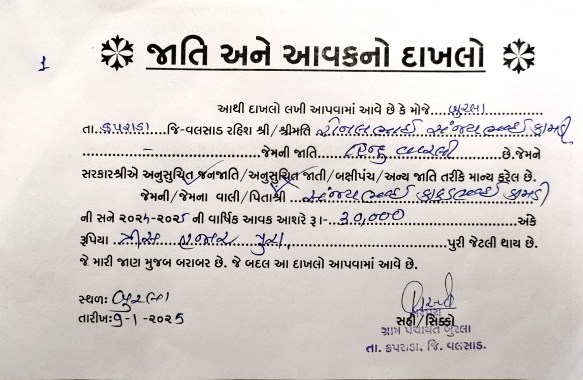 1
જાતિ અને આવકનો દાખલો
આથી દાખલો લખી આપવામાં આવે છે કે મોજે....બુરલા
તા...કપરાડા...જિ-વલસાડ રહિશ શ્રી/શ્રીમતિ રોનલભાઈ સંજયભાઈ કામડી
.....–.....જેમની જાતિ...હિન્દુ વારલી...છે.જેમને
સરકારશ્રીએ અનુસુચિત જનજાતિ/અનુસુચિત જાતી/બક્ષીપંચ/અન્ય જાતિ તરીકે માન્ય કરેલ છે.
જેમની/જેમના વાલી/પિતાશ્રી...સંજયભાઈ કામડી
ની સને ૨૦૨૪-૨૦૨૫ ની વાર્ષિક આવક આશરે રૂા-..30,000.......અંકે
રૂપિયા ..ત્રીસ હજાર પુરા,.......પુરી જેટલી થાય છે.
જે મારી જાણ મુજબ બરાબર છે. જે બદલ આ દાખલો આપવામાં આવે છે.
સ્થળ: બુરલા
તારીખ: 9-1-૨૦૨5
સહી/સિક્કો
ગ્રામ પંચાયત બુરલા
તા. કપરાડા, જિ. વલસાડ.